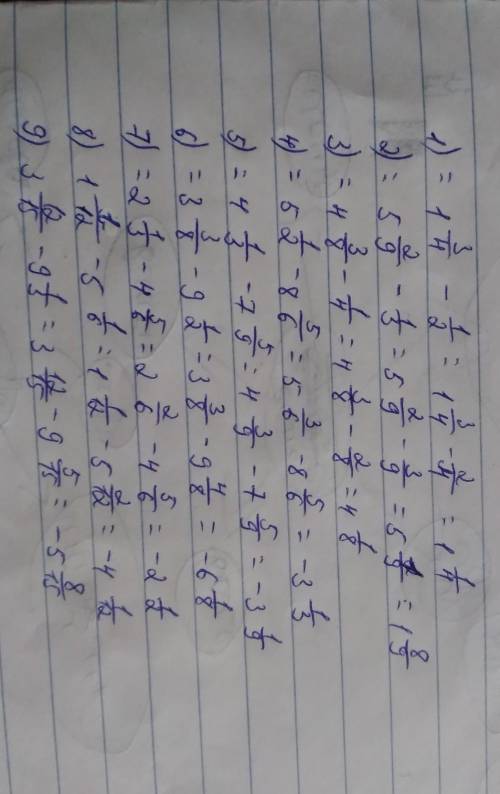 1) = 1 3/4 - 1/2 = 1 3/4 - 2/4 = 1 1/4
2) = 5 2/9 - 1/3 = 5 2/9 - 3/9 = 5 = 1 8/9
3) = 4 3/8 - 1/4 = 4 3/8 - 2/8 = 4 1/8
4) = 5 1/2 - 8 5/6 = 5 3/6 - 8 5/6 = -3 1/3
5) = 4 1/3 - 7 5/9 = 4 3/9 - 7 5/9 = -3 1/9
6) = 3 3/8 - 9 1/2 = 3 3/8 - 9 4/8 = -6 1/8
7) = 2 1/3 - 4 5/6 = 2 2/6 - 4 5/6 = -2 1/2
8) 1 1/12 - 5 1/6 = 1 1/12 - 5 2/12 = -4 1/12
9) 3 12/15 - 9 1/3 = 3 12/15 - 9 5/15 = -5 8/15